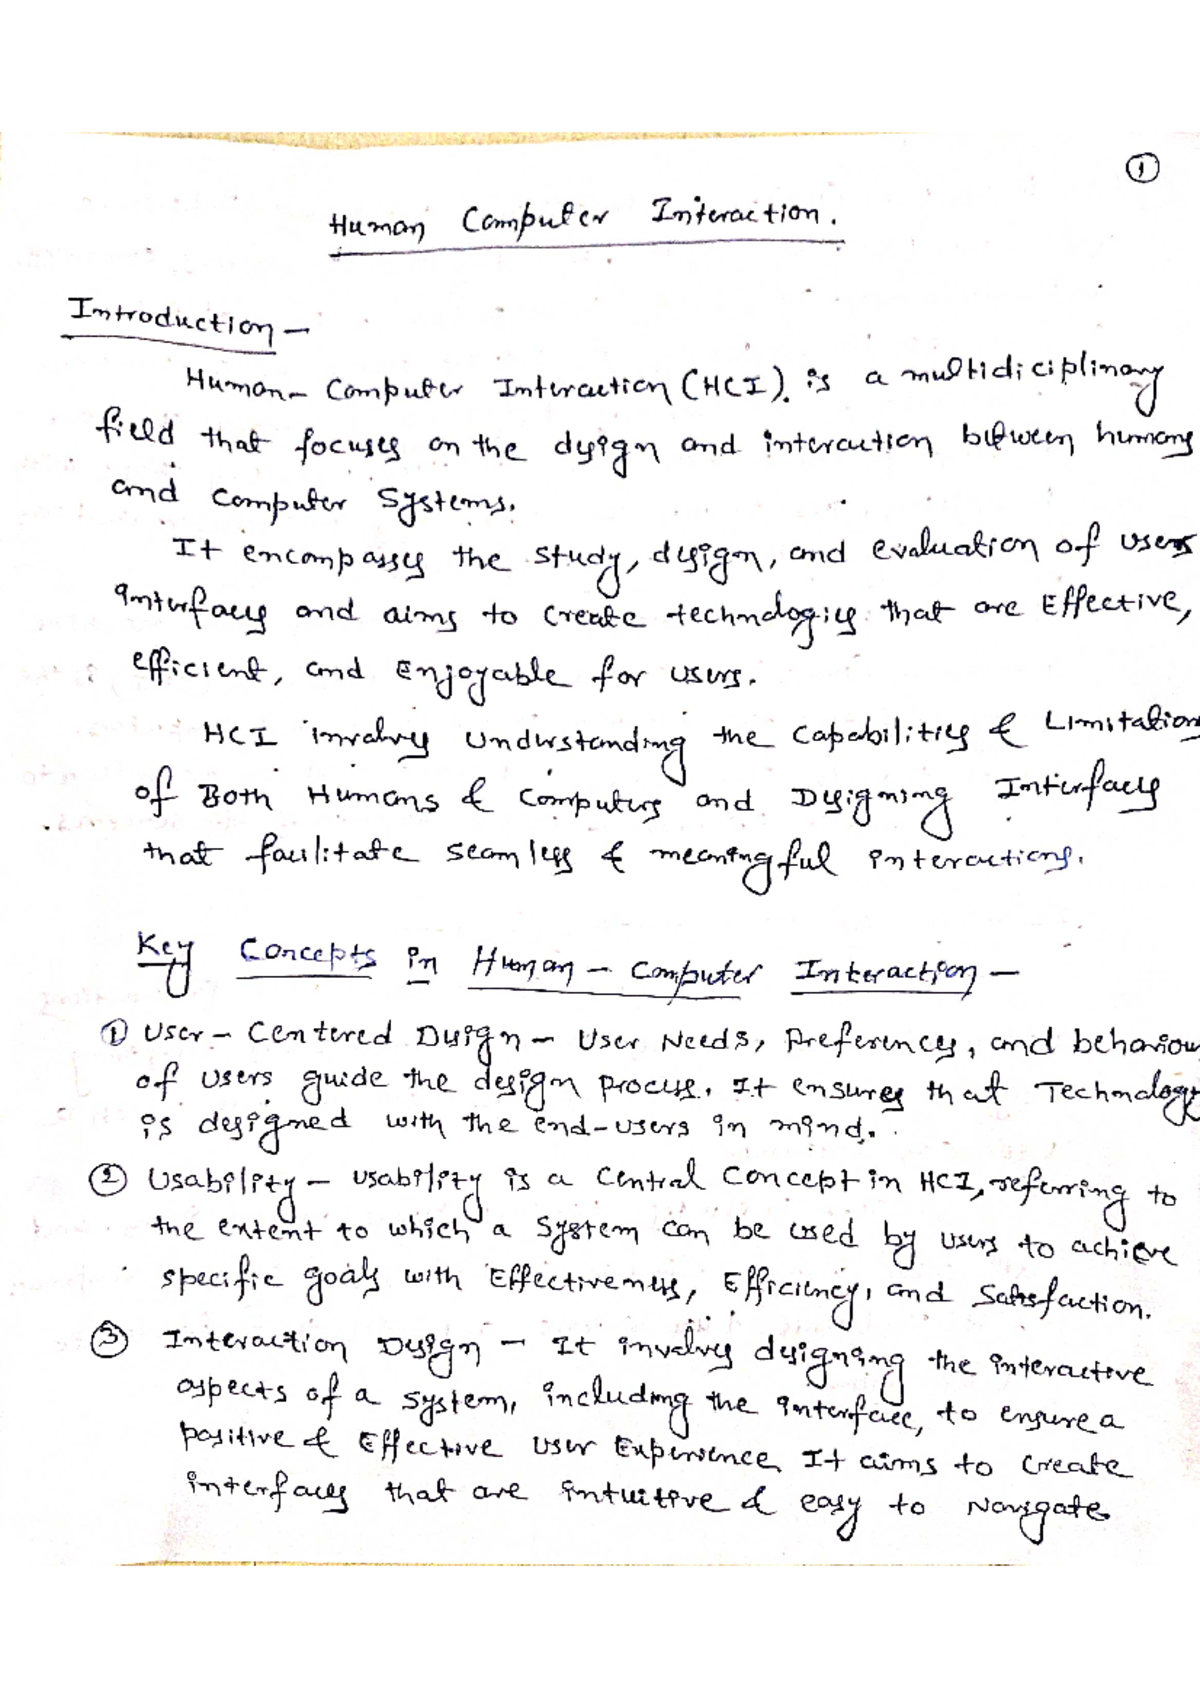 ①
Human Computer Interaction.
Introduction -
Human-Computer Interaction (HCI). is a multidiciplinary
field that focuses on the design and interaction between humans
and Computer Systems.
It encompasses the study, design, and evaluation of users
interfaces and aims to create technologies that are Effective,
efficient, and Enjoyable for users.
HCI involves understanding the capabilities & Limitation
of Both Humans & Computers and Designing Interfaces
that facilitate seamless & meaningful interactions.
Key Concepts in Human-Computer Interaction -
① User-Centered Design - User Needs, Preferences, and behaviou
of users guide the design process. It ensures that Technology
is designed with the end-users in mind.
② Usability - usability is a Central Concept in HCI, referring to
the extent to which a system can be used by users to achieve
specific goals with Effectiveness, Efficiency, and Satisfaction.
③ Interaction Design - It involves designing the interactive
aspects of a system, including the interface, to ensure a
positive & Effective User Experience. It aims to create
interfaces that are intuitive & easy to Navigate